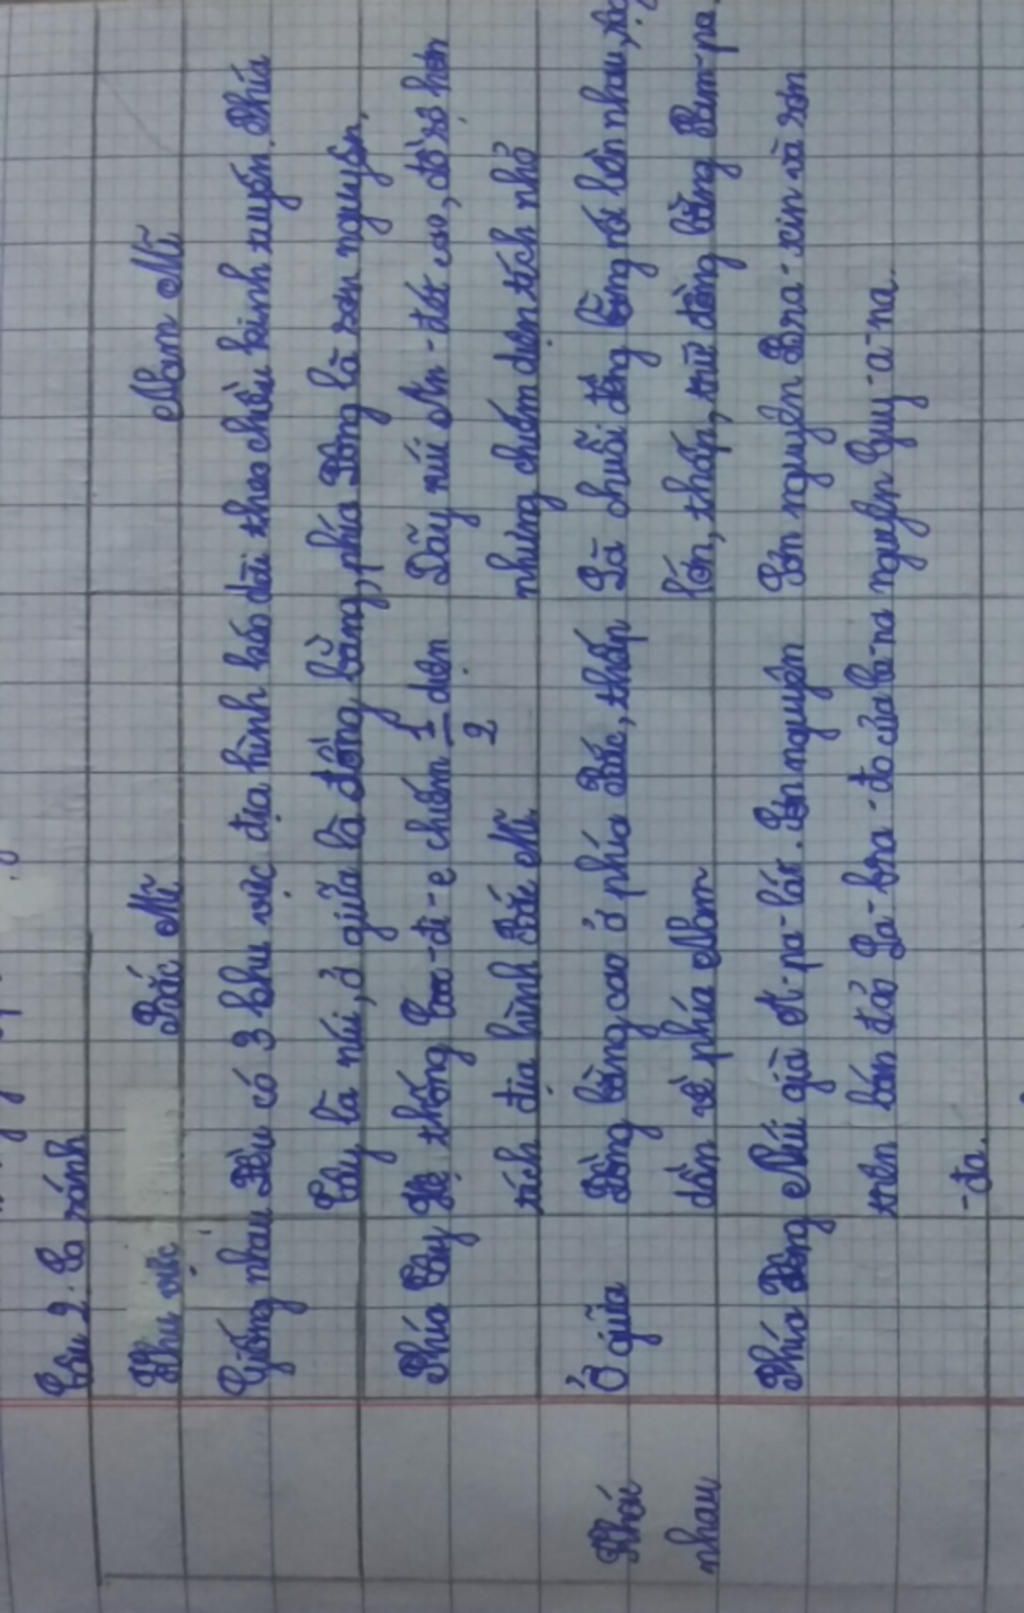 Câu 2: So sánh
Khu vực Bắc Mĩ Nam Mĩ
Giống nhau Đều có 3 khu vực địa hình kéo dài theo chiều kinh tuyến. Phía
Tây là núi, ở giữa là đồng bằng, phía Đông là sơn nguyên.
Phía Tây Hệ thống Coo-đi-e chiếm 1/2 diện Dãy núi An-đét cao, đồ sộ hơn
tích địa hình Bắc Mĩ nhưng chiếm diện tích nhỏ
Khác Ở giữa Đồng bằng cao ở phía Bắc, thấp Là chuỗi đồng bằng nối liền nhau,
nhau dần về phía Nam lớn, thấp, trừ đồng bằng Pam-pa.
Phía Đông Núi già A-pa-lát. Sơn nguyên Sơn nguyên Bra-xin và sơn
trên bán đảo La-bra-đo của Ca-na nguyên Guy-a-na.
-đa.